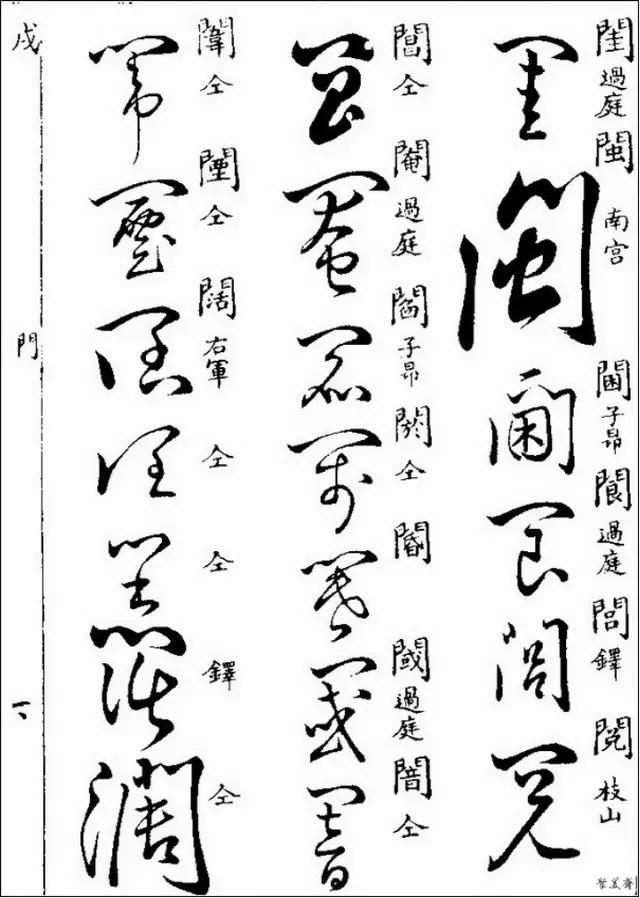 閨 過庭 閩 南宫 閫 子昂 閬 過庭 閭 鐸 閱 枝山
閶 仝 閹 過庭 閻 子昂 閼 仝 閽 閾 過庭 闇 仝
闈 仝 闉 仝 闊 右軍 仝 仝 鐸 仝
戌 門